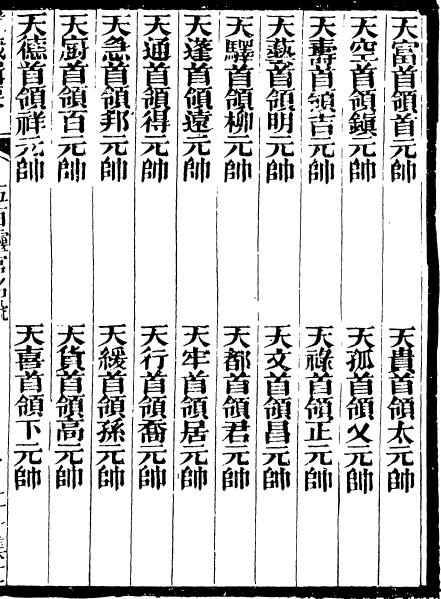 天富首領首元帥　天貴首領太元帥
天空首領鎮元帥　天孤首領父元帥
天壽首領吉元帥　天祿首領正元帥
天藝首領明元帥　天文首領昌元帥
天驛首領柳元帥　天都首領君元帥
天蓬首領遠元帥　天牢首領居元帥
天通首領得元帥　天行首領喬元帥
天急首領邦元帥　天緩首領孫元帥
天廚首領百元帥　天貨首領高元帥
天僖首領祥元帥　天喜首領下元帥
五百靈官名號